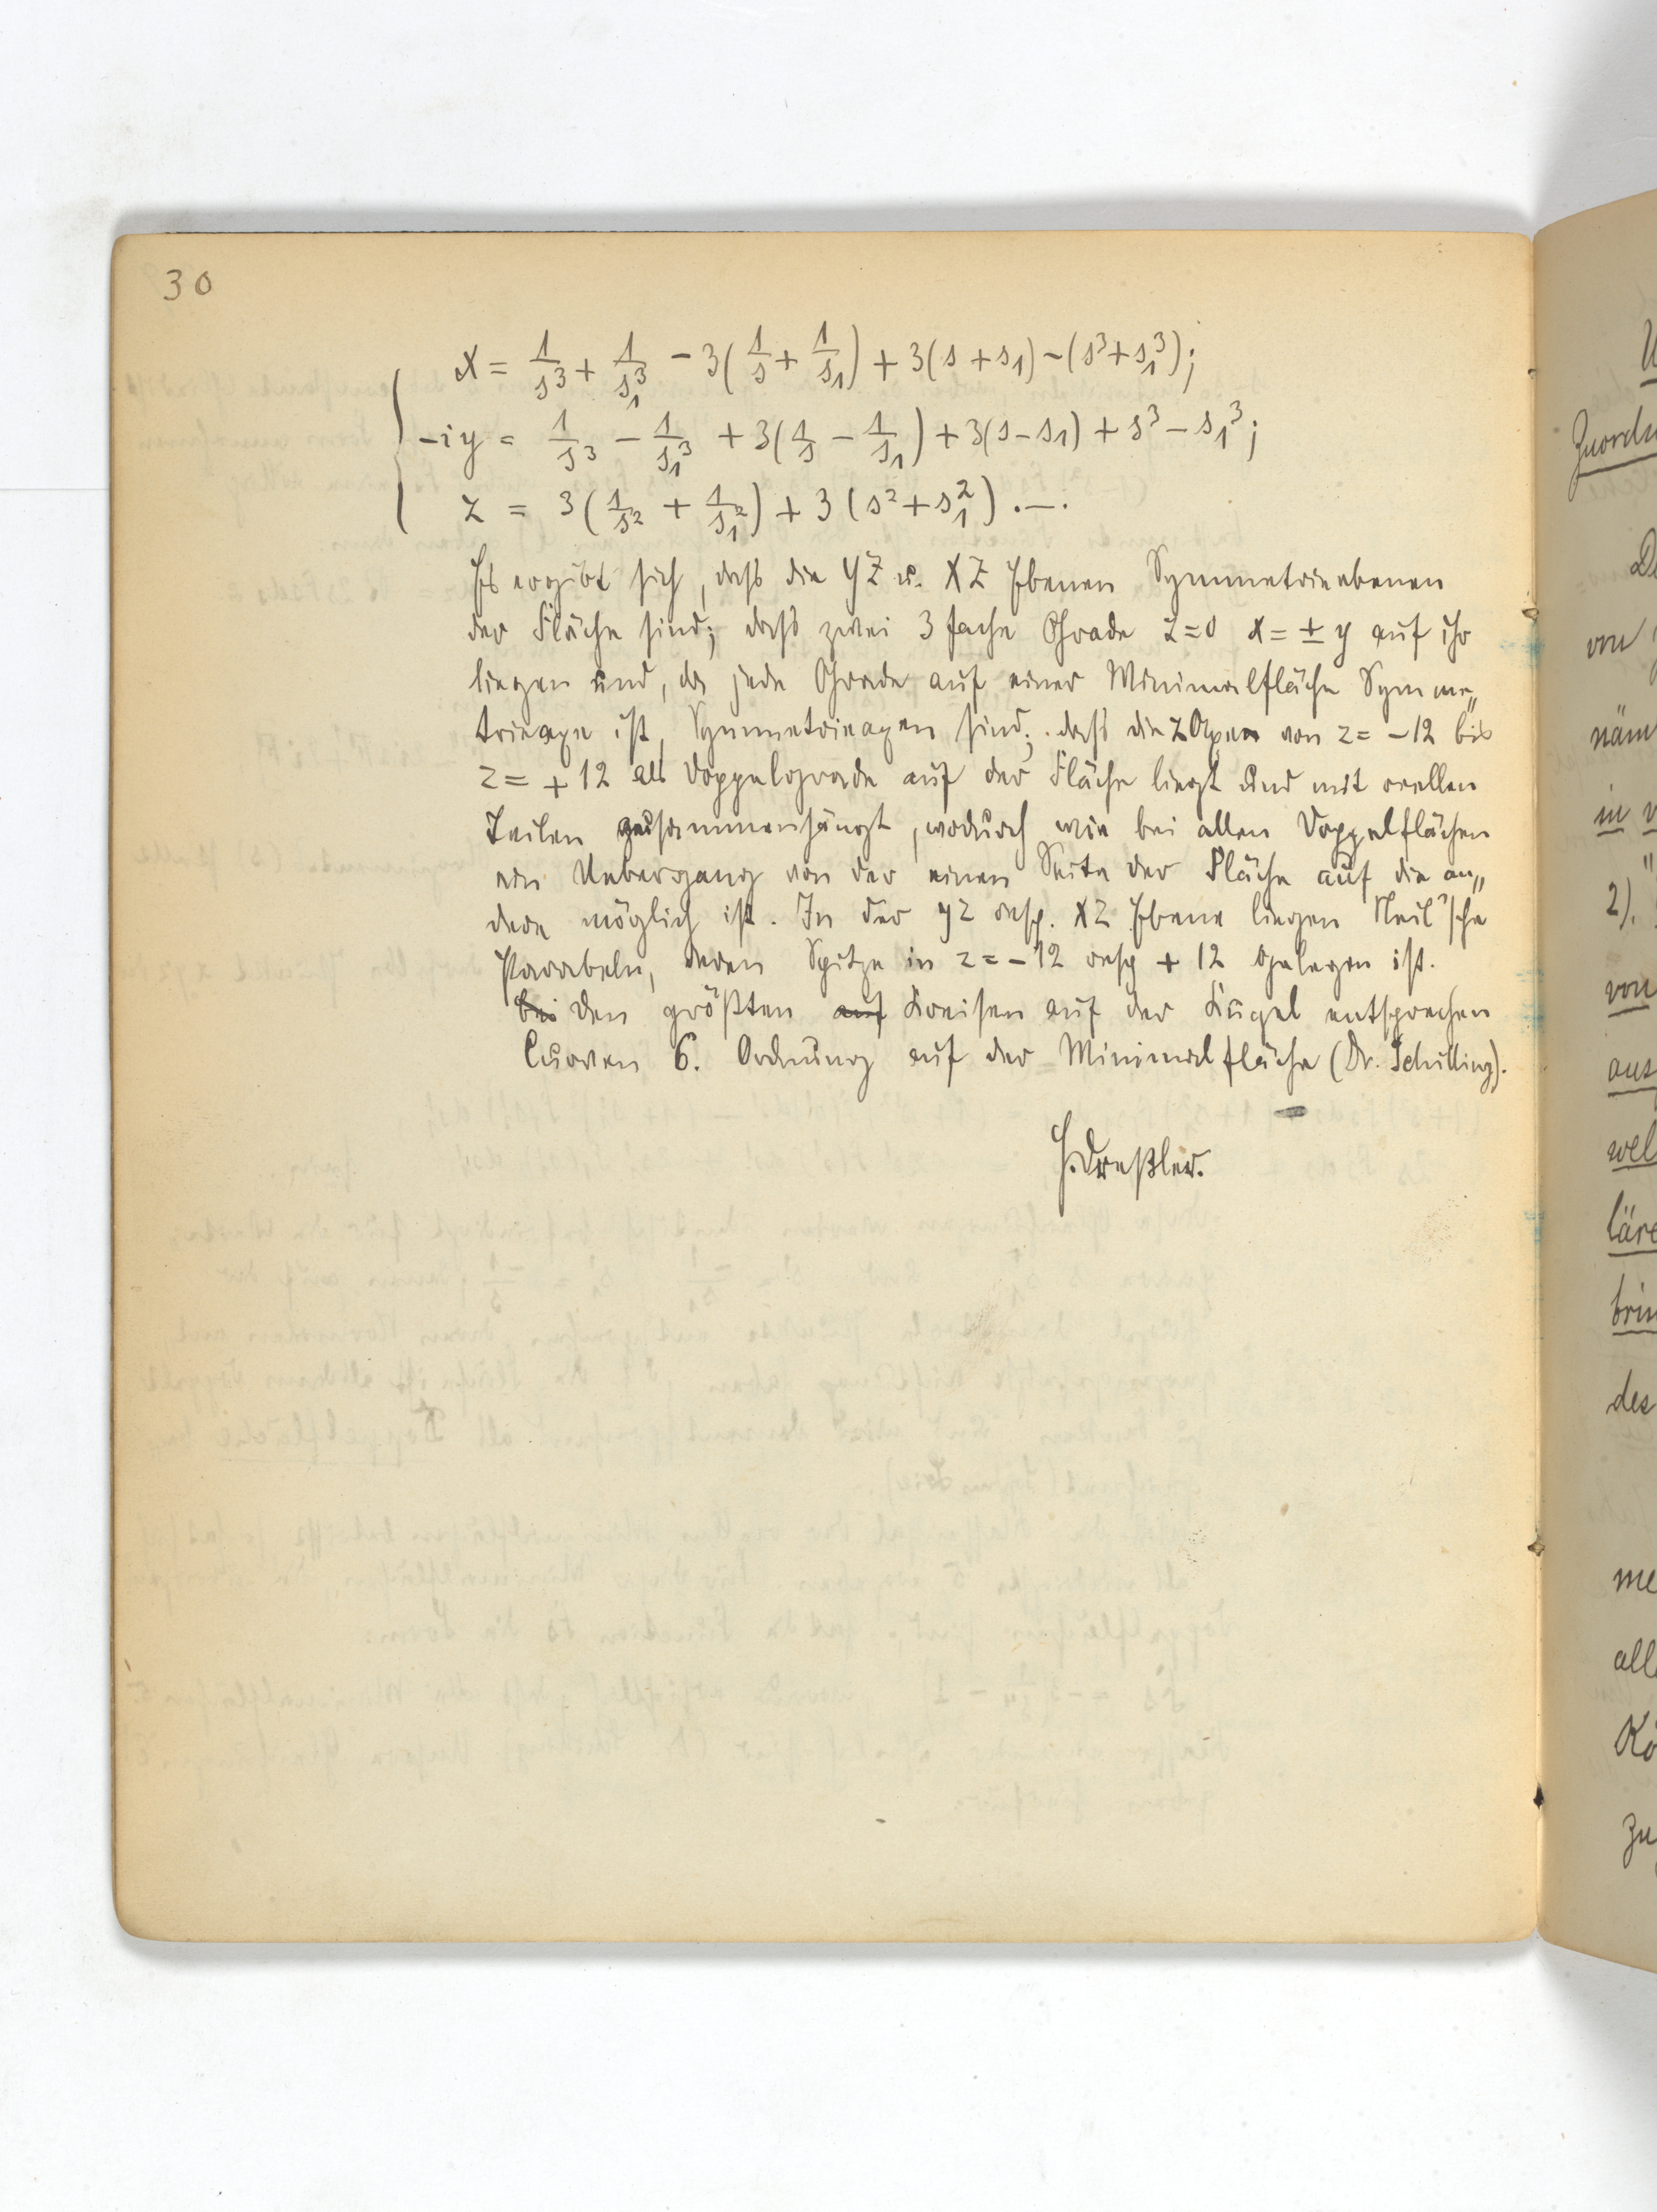 30
x = 1/s³ + 1/s₁³ - 3(1/s + 1/s₁) + 3(s + s₁) - (s³ + s₁³);
-iy = 1/s³ - 1/s₁³ + 3(1/s - 1/s₁) + 3(s - s₁) + s³ - s₁³;
z = 3(1/s² + 1/s₁²) + 3(s² + s₁²).—.
Es ergibt sich, dass die YZ u. XZ Ebenen Symmetrieebenen
der Fläche sind; dass zwei 3 fache Grade z=0 x=±y auf ihr
liegen und, da jede Grade auf einer Minimalfläche Symme„
trieaxe ist, Symmetrieaxen sind; dass die z Axe von z = -12 bis
z = +12 als Doppelgrade auf der Fläche liegt und mit reellen
Teilen zusammenhängt, wodurch wie bei allen Doppelflächen
ein Uebergang von der einen Seite der Fläche auf die an„
dere möglich ist. In der yz resp. xz Ebene liegen Neil'sche
Parabeln, deren Spitze in z = -12 resp + 12 gelegen ist.
bei den größten auf Kreisen auf der Kugel entsprechen
Curven 6. Ordnung auf der Minimalfläche (Dr. Schilling).
H. Dreßler.
Zuord
von
näm
in
2).
von
aus
wel
läre
brin
des
me
all
Kö
zu